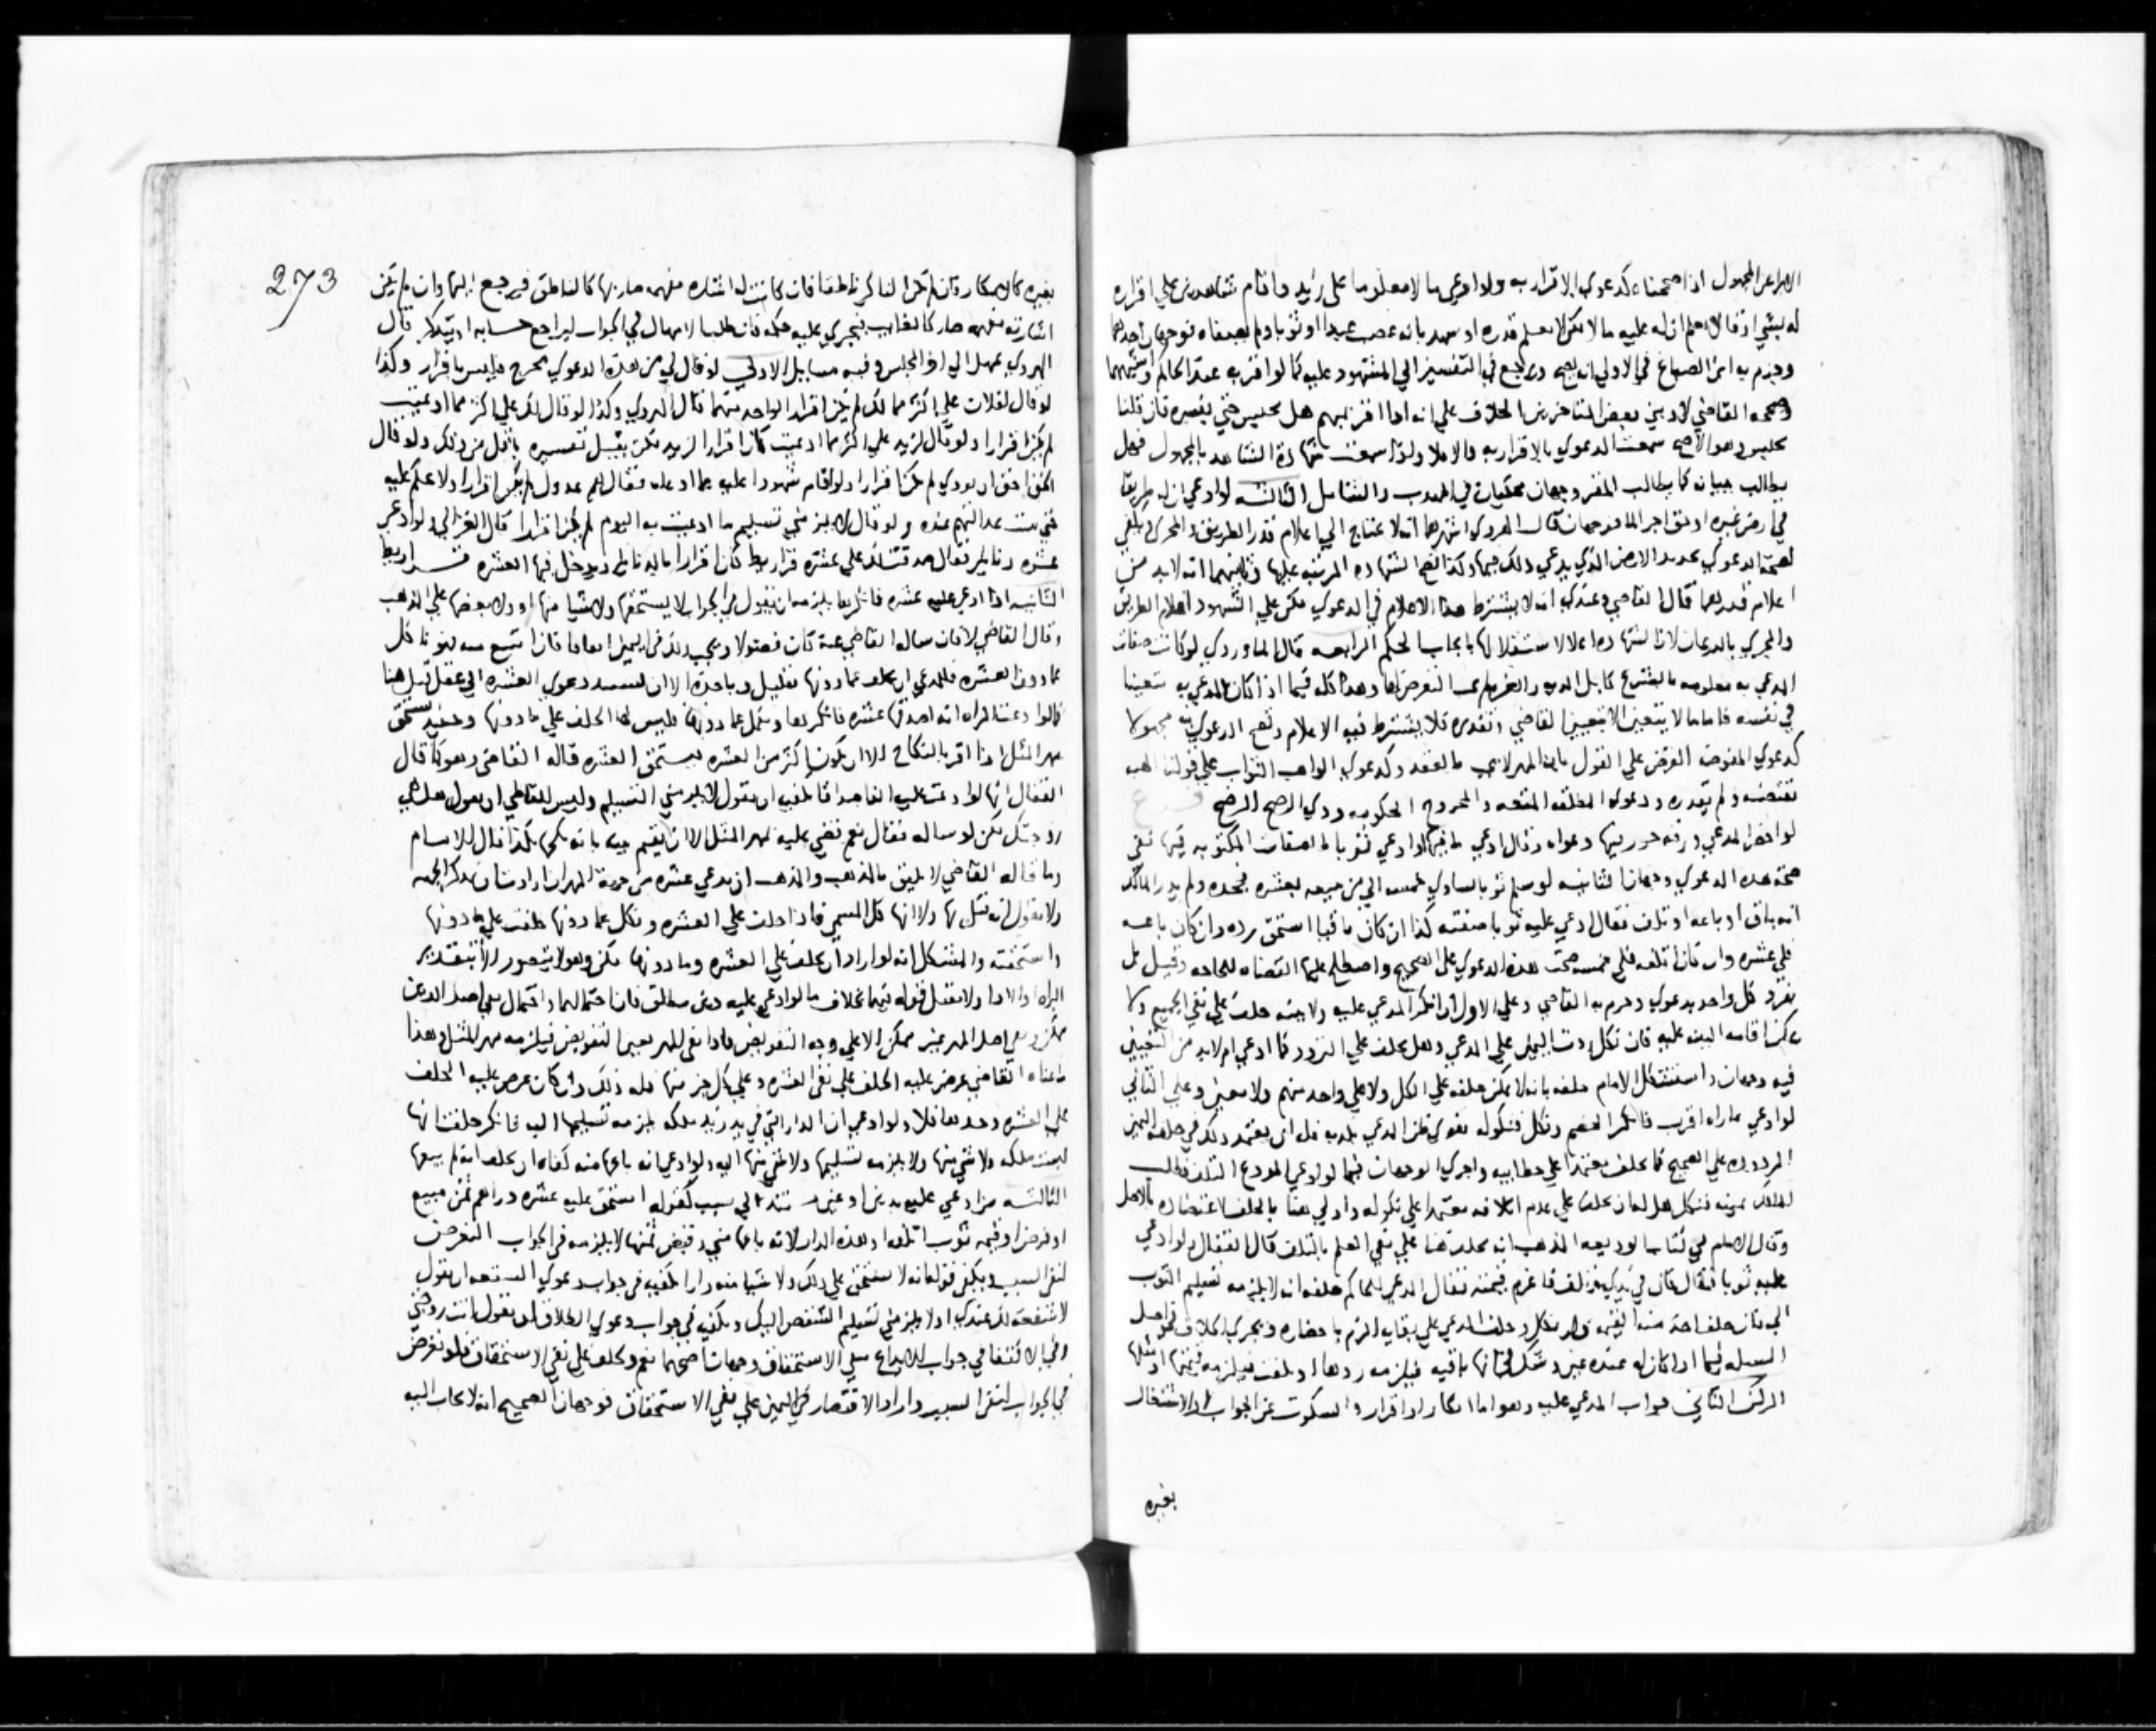 الابراء عن المجهول اذا صححناه كدعوي الاقرار به ولو ادعي مالا معلوما علي زيد واقام شاهدين علي اقراره
له بشي اذ قالا نعلم ان له عليه مالا لكن لا نعلم قدره او شهد بانه غصب عبدا او ثوبا ولم يصفاه فوجهان احدهما
وجزم به ابن الصباغ في الاولي انه يصح ويرجع في التفسير الي المشهود عليه كما لو اقر به عند الحاكم واشبههما
وصححه القاضي لا وبني بعض المتاخرين الخلاف علي انه اذا اقر بمبهم هل يحبس حتي يفسره فان قلنا
يحبس وهو الاصح سمعت الدعوي بالاقرار به والا فلا واذا سمعت شهادة الشاهد بالمجهول فهل
يطالب ببيانه كما يطالب المقر وجهان محكيان في المهذب والشامل الثالثه لو ادعي ان له طريقا
في ارض غيره او حق اجرا الما فوجهان قال الهروي اشهرهما انه لا يحتاج الي اعلام قدر الطريق والمجري ويكفي
لصحة الدعوي تحديد الارض الذي يدعي ذلك فيها وكذا تصح الشهاده المرتبه عليها وثانيهما انه لابد من
اعلام قدرهما قال القاضي وعندي انه لا يشترط هذا الاعلام في الدعوي لكن علي الشهود اعلام الطريق
والمجري بالذرعان لان الشهاده اعلا لاستقلالها بايجاب الحكم الرابعه قال الماوردي لو كانت صفات
المدعي به معلومه بالشرع كابل الديه والغره لم يجب التعرض لها وهذا كله فيما اذا كان المدعي به متعينا
في نفسه فاما ما لا يتعين الا بتعيين القاضي وتقديره فلا يشترط فيه الاعلام وتصح الدعوي به مجهولا
كدعوي المفوضه الفرض علي القول بان المهر لا يجب بالعقد وكدعوي الواهب الثواب علي قولنا الهبه
تقتضيه ولم تقدره ودعوي المطلقه المتعه والمجروح الحكومه وذي الرضخ الرضخ فرع
لو احضر المدعي ورقه حرر فيها دعواه وقال ادعي ما فيها او ادعي ثوبا بالصفات المكتوبه فيها ففي
صحة هذه الدعوي وجهان الثانيه لو سلم ثوبا يساوي خمسه الي من يبيعه بعشره فجحده ولم يدر المالك
انه باق او باعه او تلف فقال ادعي عليه ثوبا صفته كذا ان كان باقيا استحق رده وان كان باعه
فلي عشره وان كان اتلفه فلي خمسه صحت هذه الدعوي علي الصحيح واصطلح عليها القضاه للحاجه وقيل بل
يفرد كل واحد بدعوي وجزم به القاضي وعلي الاول ان انكر المدعي عليه ولا بينه حلف علي نفي الجميع ولا
يمكن اقامه البينه عليه فان نكل ردت اليمين علي المدعي وهل يحلف علي التردد كما ادعي ام لابد من التعيين
فيه وجهان واستشكل الامام حلفه بانه لا يمكن حلفه علي الكل ولا علي واحد منهم ولا معين وعلي الثاني
لو ادعي ما راه اقرب فانكر الخصم ونكل فنكوله يقوي ظن المدعي بكذبه فله ان يعتمد ذلك في حلفه اليمين
المردوده علي الصحيح كما يحلف معتمدا علي خط ابيه واجري الوجهان فيما لو ادعي المودع التلف فطلب
المالك يمينه فنكل هل له ان يحلف علي عدم اتلافه معتمدا علي نكوله واولي هنا بالحلف لاعتضاده بالاصل
وقال الامام في كتاب الوديعه المذهب انه يحلف هنا علي نفي العلم بالتلف قال القفال ولو ادعي
عليه ثوبا فقال كان في يدي وتلف فاغرم قيمته فقال المدعي للحاكم حلفه انه لا يلزمه تسليم الثوب
الي فان حلف اخذ منه القيمه وان نكل وحلف المدعي علي بقايه الزم باحضاره ويجري الخلاف في اصل
المساله فيما اذا كان له عنده عين وشك في انها باقيه فيلزمه ردها او تلفت فيلزمه قيمتها او مثلها
الركن الثاني جواب المدعي عليه وهو اما انكار او اقرار والسكوت عن الجواب او الاشتغال
بغيره
273
بغيره كالانكار وان لم يكن انكر ناطقا فان كانت له اشاره مفهمه صار بها كالناطق فيرجع اليها وان لم تكن
اشارته مفهمه صار كالغايب فيجري عليه حكمه فان طلب الامهال في الجواب ليراجع حسابه او يتذكر قال
الهروي يمهل الي اخر المجلس وفيه مسايل الاولي لو قال لي من هذه الدعوي مخرج فليس باقرار وكذا
لو قال لفلان علي اكثر مما لك لم يكن اقرارا لواحد منهما قال الهروي وكذا لو قال لك علي اكثر مما ادعيت
لم يكن اقرارا ولو قال لزيد علي اكثر مما ادعيت كان اقرارا لزيد لكن يقبل تفسيره باقل من ذلك ولو قال
الحق احق ان يودي لم يكن اقرارا ولو اقام شهودا عليه بما ادعاه فقال هم عدول لم يكن اقرارا ولا حكم عليه
حتي تثبت عدالتهم عنده ولو قال لا يلزمني تسليم ما ادعيت به اليوم لم يكن اقرارا قال الغزالي ولو ادعي
عشره دنانير فقال صدقت لك علي عشره قراريط كان اقرارا بالدنانير ويدخل فيها العشره قراريط
الثانيه اذا ادعي عليه عشره فانكرها يلزمه ان يقول في الجواب لا يستحقها ولا شيا منها او ولا بعضها علي المذهب
وقال القاضي لا فان ساله القاضي عنه كان فضولا ويجب ذلك في اليمين اتفاقا فان امتنع منه فهو ناكل
عما دون العشره فللمدعي ان يحلف عما دونها بقليل وياخذه الا ان تستند دعوي العشره الي عقد قيل هنا
كما لو ادعت المراه انه اصدقها عشره فانكرها ونكل عما دونها فليس لها الحلف علي ما دونها وحينئذ تستحق
مهر المثل اذا اقر بالنكاح الا ان يكون اكثر من العشره فيستحق العشره قاله القاضي وهو كما قال
القفال انها لو ادعت عليه الفا صداقا كفي ان يقول لا يلزمني التسليم وليس للقاضي ان يقول هل هي
زوجتك لكن لو ساله فقال نعم قضي عليه بمهر المثل الا ان يقيم بينه بانه نكحها بكذا قال الامام
وما قاله القاضي لا يليق بالمذهب والمذهب ان يدعي عشره من جهة المهر ان ارادت ان تذكر الجهه
ولا تقول انه نكحها ولا انها كل المسمي فاذا حلف علي العشره ونكل عما دونها حلفت علي ما دونها
واستحقته والمشكل انه لو اراد ان يحلف علي العشره وما دونها لكن وهو لا يتصور الا بتقدير
البراه او الادا ولا يقبل قوله فيهما بخلاف ما لو ادعي عليه دين مطلق فان احتمالهما واحتمال نفي اصل الدين
ممكن ونفي اصل المهر غير ممكن الا علي وجه التفويض فاذا نفي المهر تعين التفويض فيلزمه مهر المثل وهذا
علي العشره وحدها فلا ولو ادعي ان الدار التي في يد زيد ملكه يلزمه تسليمها اليه فانكر حلف انها
ليست ملكه ولا شي منها ولا يلزمه تسليمها ولا شي منها اليه ولو ادعي انه باعها منه كفاه ان يحلف انه لم يبعها
الثالثه من ادعي عليه بدين او عين مستندا الي سبب كقوله استحق عليه عشره دراهم ثمن مبيع
او قرضا او قيمه ثوب اتلفه او هذه الدار لانه باعها مني وقبض ثمنها لا يلزمه في الجواب التعرض
لنفي السبب ويكفي قوله انه لا يستحق علي ذلك ولا شيا منه واذا كفيه في جواب دعوي الشفعه ان يقول
لا شفعة لك عندي او لا يلزمني تسليم الشقص اليك ويكفي في جواب دعوي الطلاق ان يقول انت زوجتي
وفي الاكتفا في جواب الايداع بنفي الاستحقاق وجهان اصحهما نعم ويحلف علي نفي الاستحقاق فلو تعرض
في الجواب لنفي السبب واراد الاقتصار في اليمين علي نفي الاستحقاق فوجهان الصحيح انه لا يجاب اليه